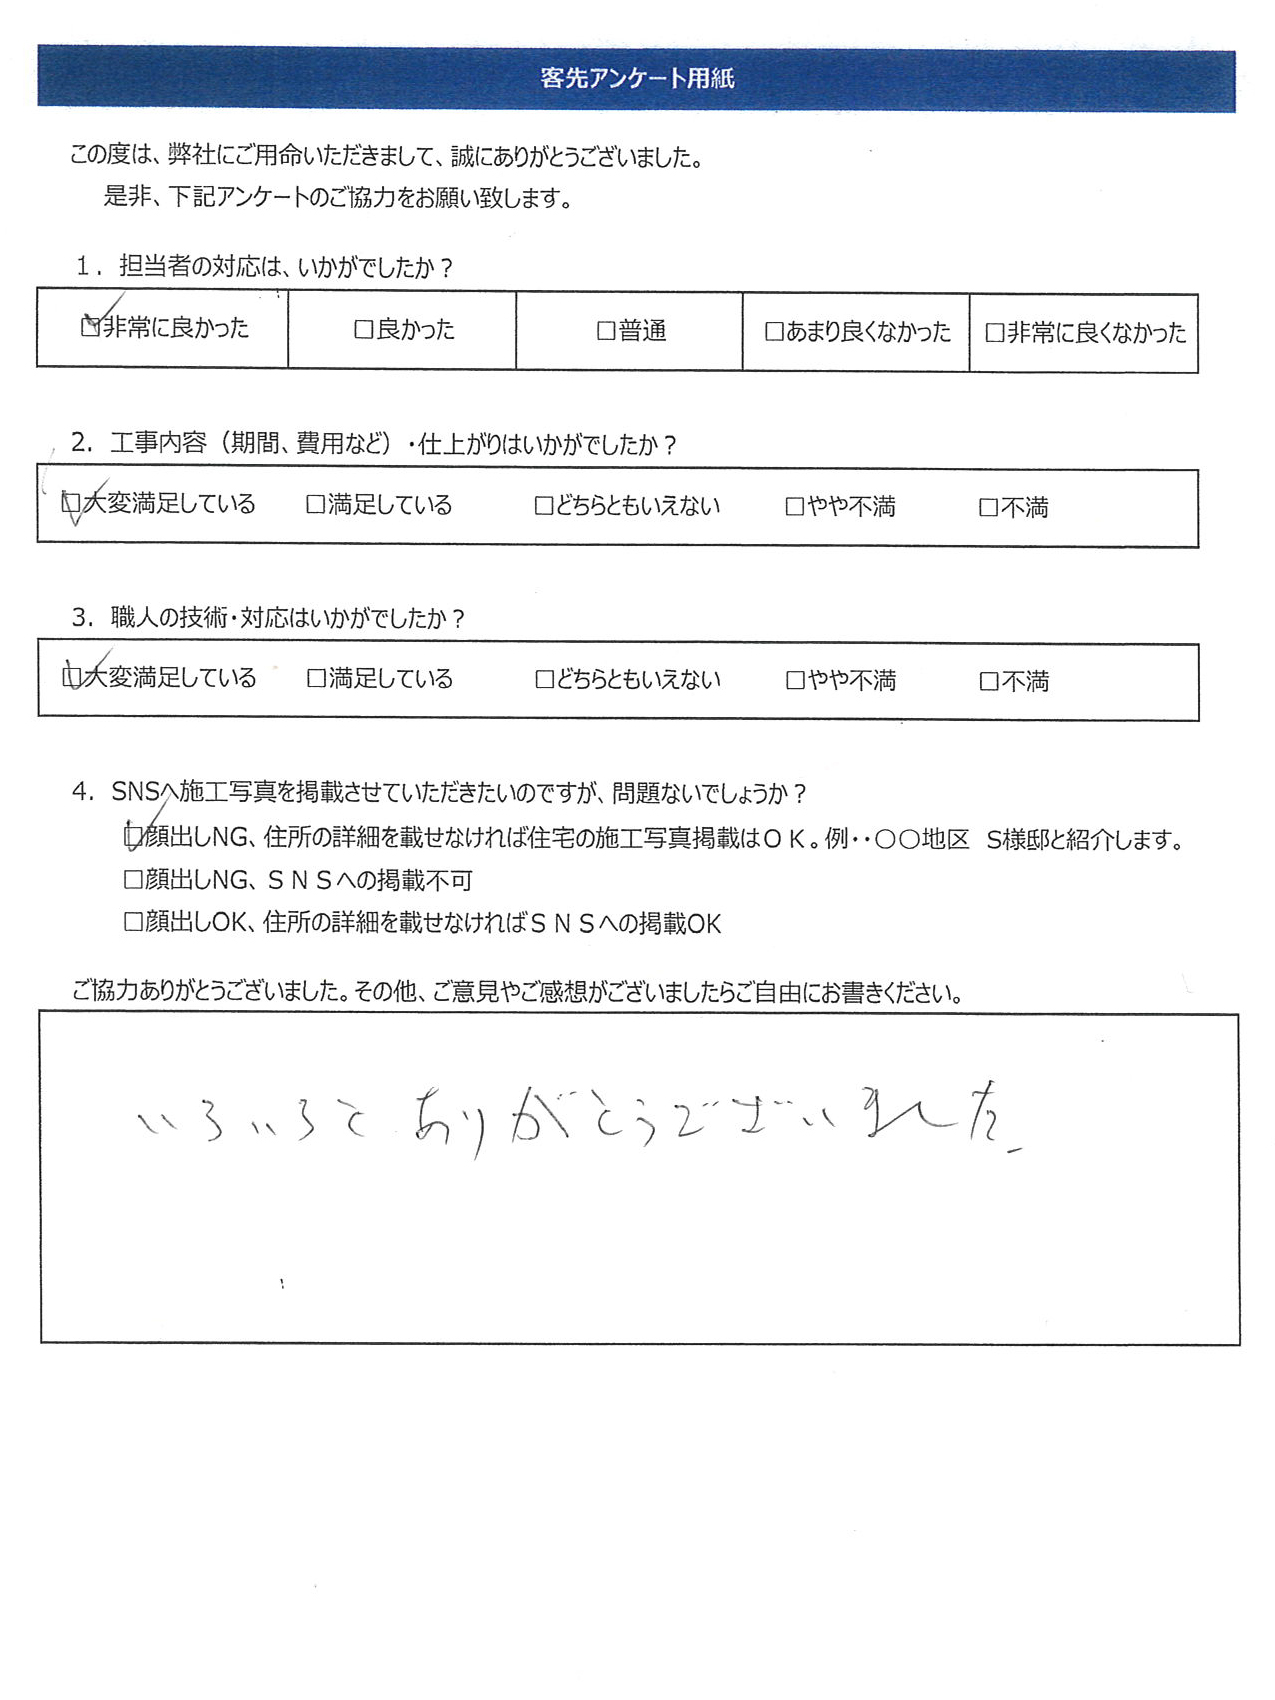 客先アンケート用紙
この度は、弊社にご用命いただきまして、誠にありがとうございました。
是非、下記アンケートのご協力をお願い致します。
１．担当者の対応は、いかがでしたか？
☑非常に良かった □良かった □普通 □あまり良くなかった □非常に良くなかった
2．工事内容（期間、費用など）・仕上がりはいかがでしたか？
☑大変満足している □満足している □どちらともいえない □やや不満 □不満
3．職人の技術・対応はいかがでしたか？
☑大変満足している □満足している □どちらともいえない □やや不満 □不満
4．SNSへ施工写真を掲載させていただきたいのですが、問題ないでしょうか？
☑顔出しNG、住所の詳細を載せなければ住宅の施工写真掲載はＯＫ。例・・〇〇地区　S様邸と紹介します。
□顔出しNG、ＳＮＳへの掲載不可
□顔出しOK、住所の詳細を載せなければＳＮＳへの掲載OK
ご協力ありがとうございました。その他、ご意見やご感想がございましたらご自由にお書きください。
いろいろとありがとうございました